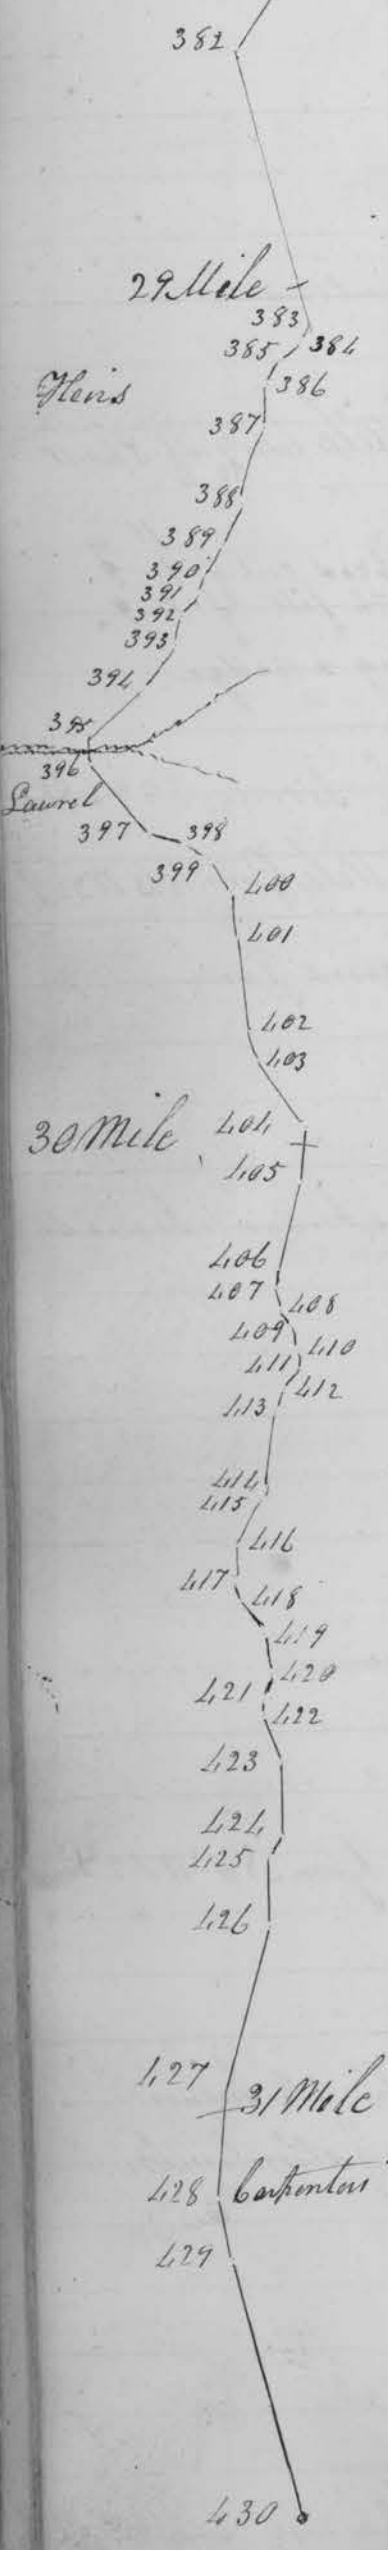 382
29 Mile
383
385 384
386
Heirs
387
388
389
390
391
392
393
394
395
396
Laurel
397 398
399
400
401
402
403
404
30 Mile
405
406
407
408
409
410
411
412
413
414
415
416
417
418
419
420
421
422
423
424
425
426
427
31 Mile
428 Carpenters
429
430